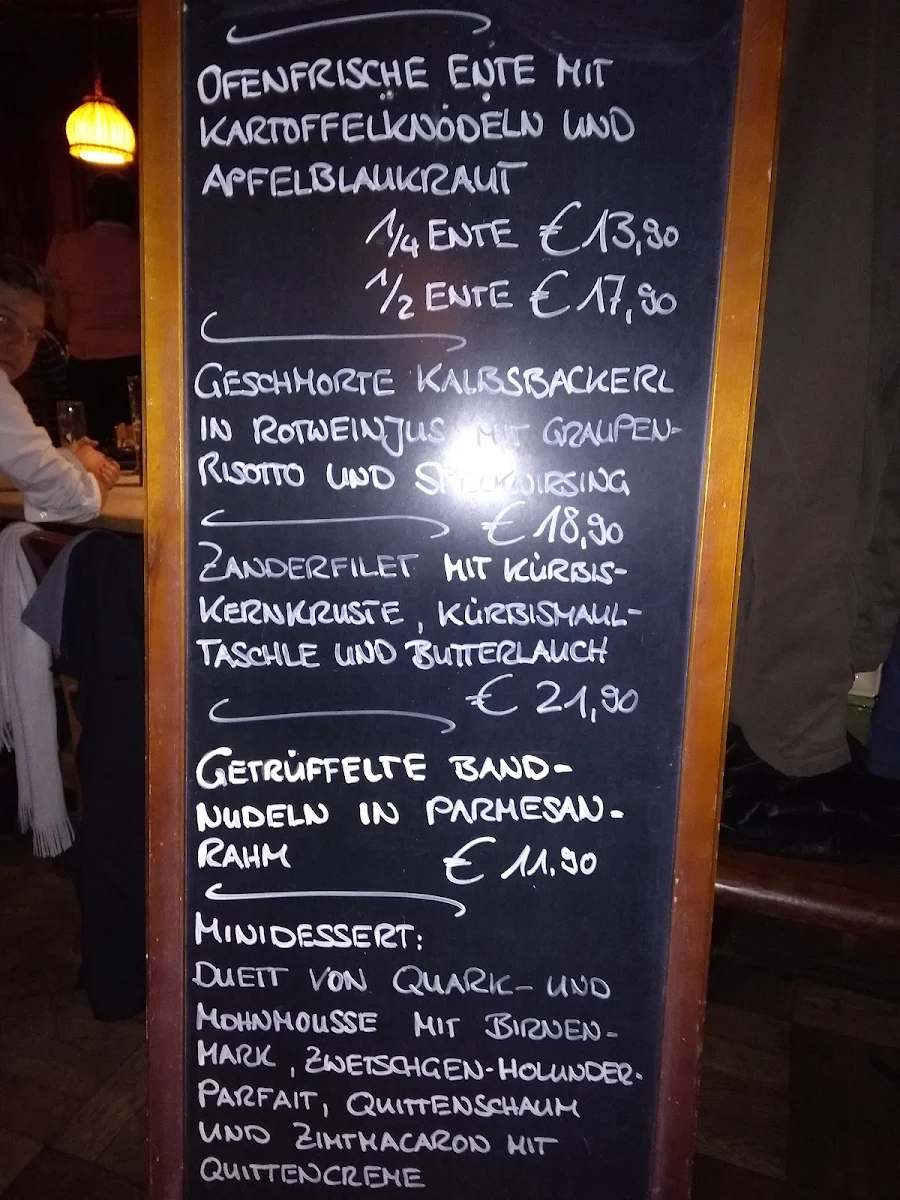 OFENFRISCHE ENTE MIT
KARTOFFELKNÖDELN UND
APFELBLAUKRAUT
1/4 ENTE € 13,90
1/2 ENTE € 17,90
GESCHMORTE KALBSBACKERL
IN ROTWEINJUS MIT GRAUPEN-
RISOTTO UND SPECKWIRSING
€ 18,90
ZANDERFILET MIT KÜRBIS-
KERNKRUSTE, KÜRBISMAUL-
TASCHLE UND BUTTERLAUCH
€ 21,90
GETRÜFFELTE BAND-
NUDELN IN PARMESAN-
RAHM € 11.90
MINIDESSERT:
DUETT VON QUARK- UND
MOHNMOUSSE MIT BIRNEN-
MARK, ZWETSCHGEN-HOLUNDER-
PARFAIT, QUITTENSCHAUM
UND ZIMTMACARON MIT
QUITTENCREME